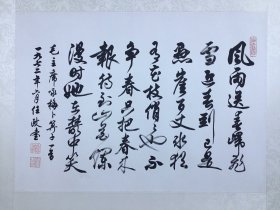 風雨送春歸飛
雪迎春到已是
悬崖百丈冰猶
有花枝俏俏也不
争春只把春来
報待到山花爛
漫时她在叢中笑
毛主席詠梅卜算子一首
一九七三年六月任政书